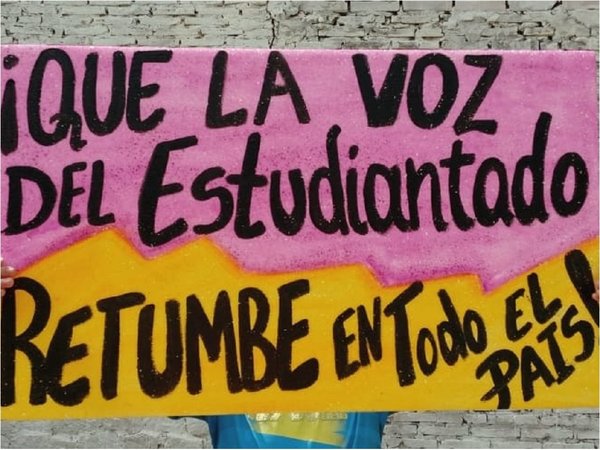 ¡QUE LA VOZ
DEL Estudiantado
RETUMBE EN Todo EL
PAÍS!